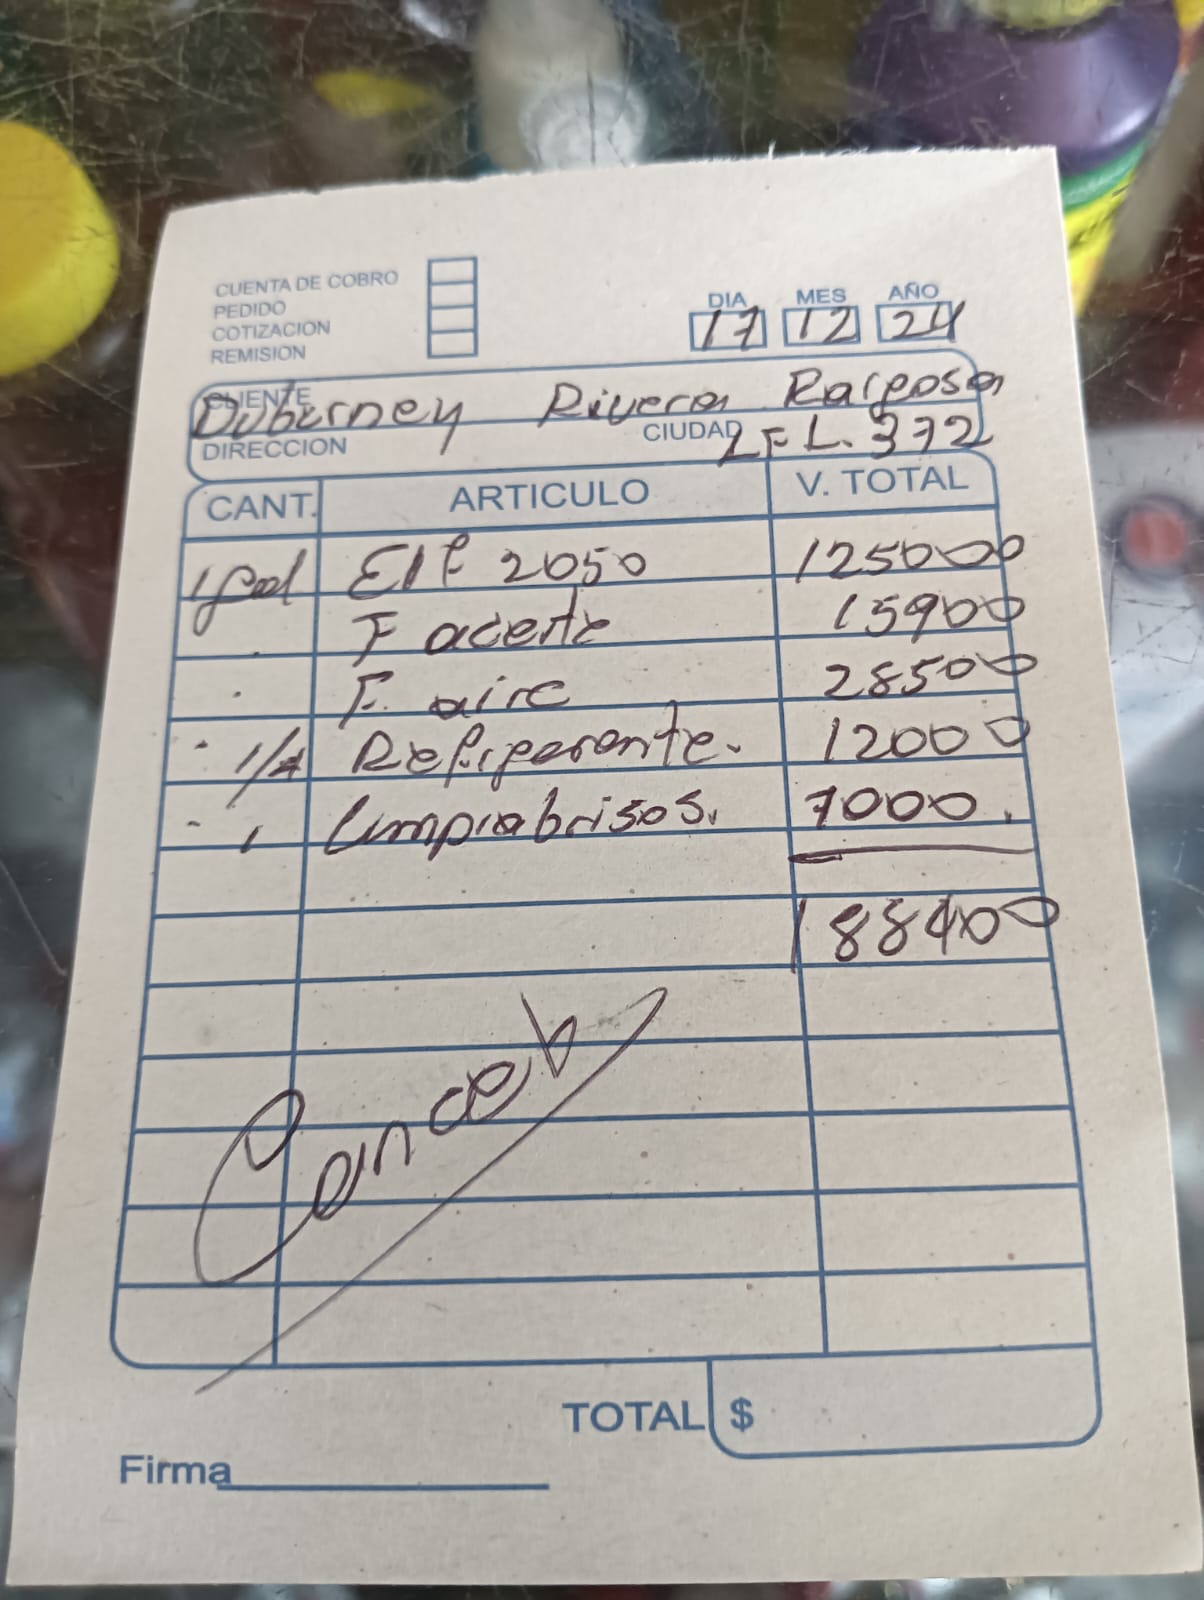 CUENTA DE COBRO
PEDIDO
COTIZACION
REMISION
DIA MES AÑO
17 12 24
CLIENTE
Duberney Rivera Raigosa
DIRECCION CIUDAD LFL.372
CANT. ARTICULO V. TOTAL
1 gal Elf 2050 125000
F aceite 15900
F. aire 28500
1/4 Refigerante. 12000
Limpiabrisas. 7000.
188400
Cancelo
TOTAL $
Firma